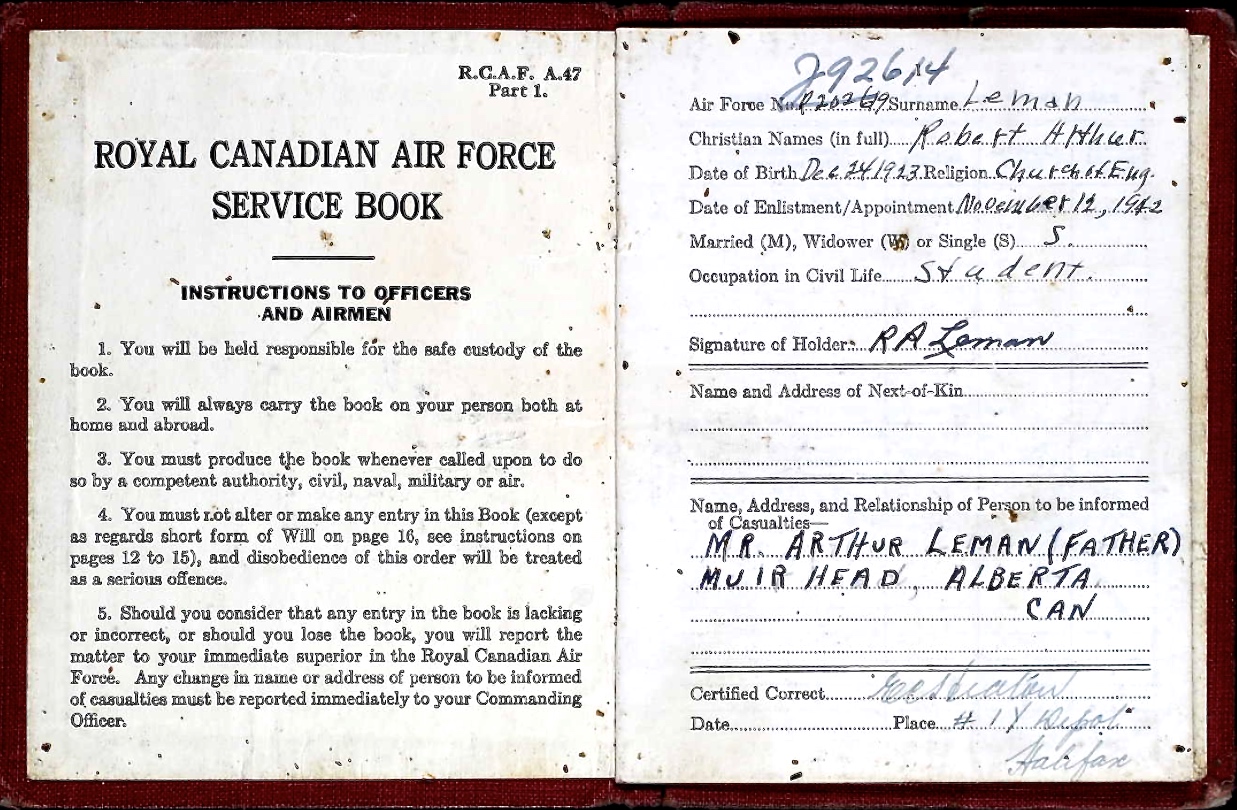 R.C.A.F. A.47
Part 1.
ROYAL CANADIAN AIR FORCE
SERVICE BOOK
INSTRUCTIONS TO OFFICERS
AND AIRMEN
1. You will be held responsible for the safe custody of the
book.
2. You will always carry the book on your person both at
home and abroad.
3. You must produce the book whenever called upon to do
so by a competent authority, civil, naval, military or air.
4. You must not alter or make any entry in this Book (except
as regards short form of Will on page 16, see instructions on
pages 12 to 15), and disobedience of this order will be treated
as a serious offence.
5. Should you consider that any entry in the book is lacking
or incorrect, or should you lose the book, you will report the
matter to your immediate superior in the Royal Canadian Air
Force. Any change in name or address of person to be informed
of casualties must be reported immediately to your Commanding
Officer.
J92614
Air Force No. Surname Leman
Christian Names (in full) Robert Arthur
Date of Birth Dec 24 1923 Religion Church of Eng.
Date of Enlistment/Appointment November 12, 1942
Married (M), Widower (W) or Single (S) S.
Occupation in Civil Life Student.
Signature of Holder RA Leman
Name and Address of Next-of-Kin
Name, Address, and Relationship of Person to be informed
of Casualties—
MR. ARTHUR LEMAN (FATHER)
MUIR HEAD, ALBERTA
CAN
Certified Correct
Date Place # 1 Y Depot
Halifax